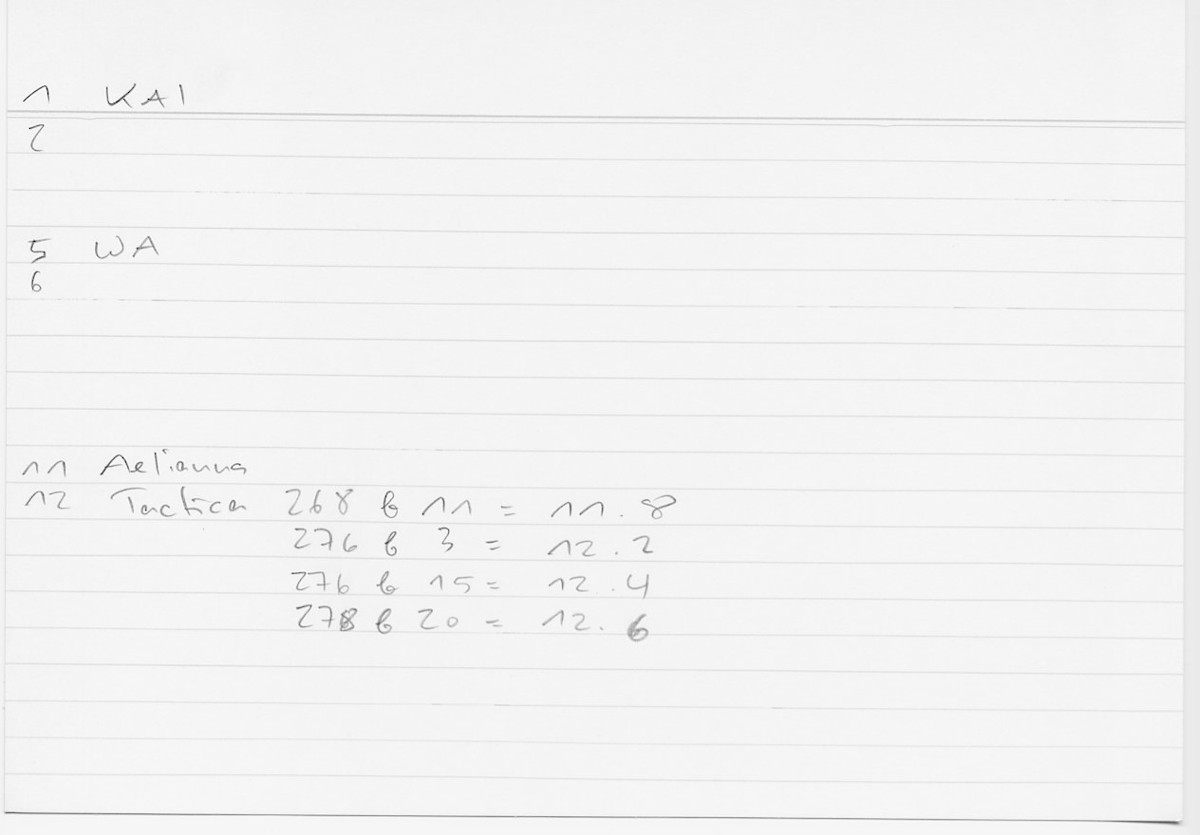 1 KAI
2
5 WA
6
11 Aelianus
12 Tactica 268 b 11 = 11.8
276 b 3 = 12.2
276 b 15 = 12.4
278 b 20 = 12.6